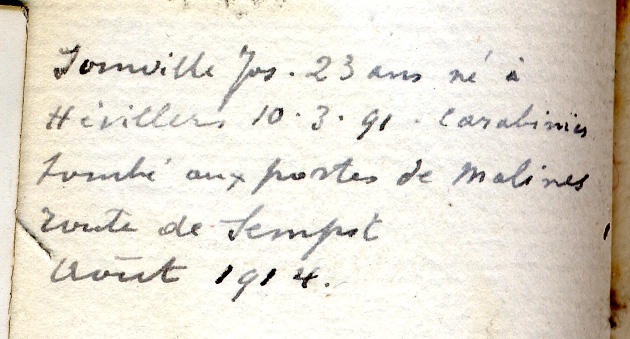 Joinville Jos. 23 ans né à
Hévillers 10.3.91. Carabinier
tombé aux portes de Malines
route de Sempst
Août 1914.